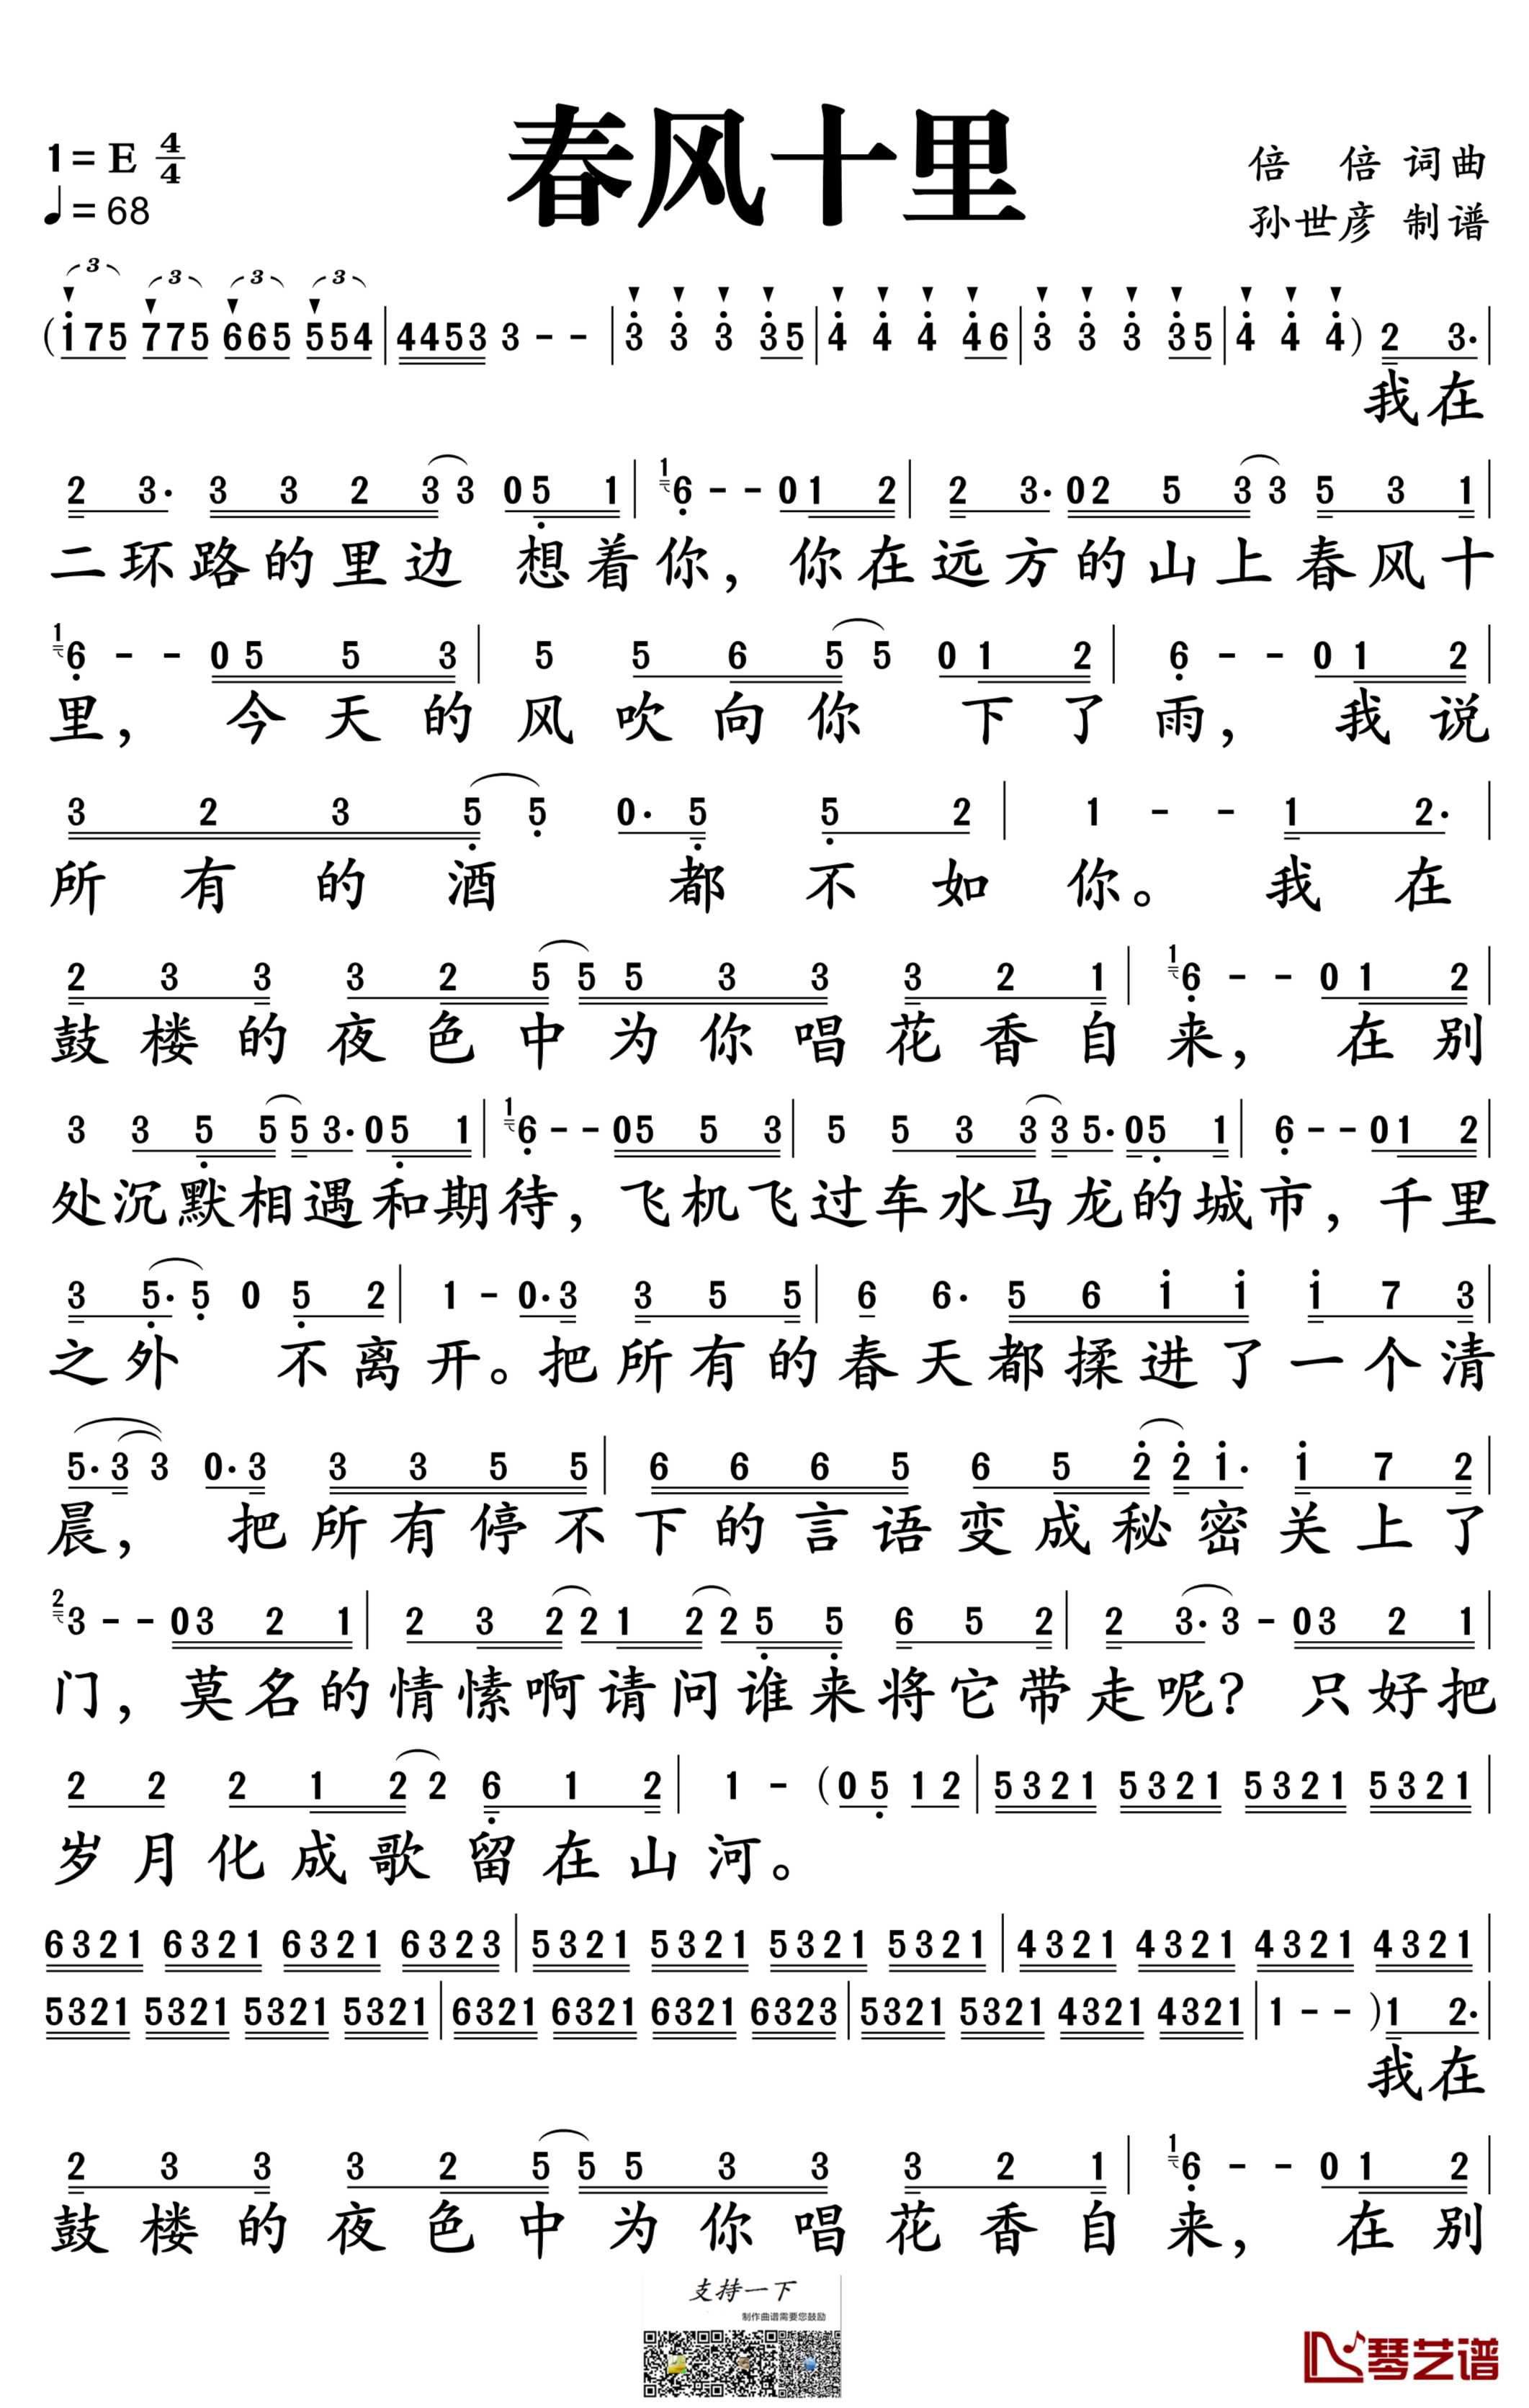 春风十里
1=E 4/4
♩=68
倍 倍 词曲
孙世彦 制谱
3 3 3 3
(175 775 665 554|4453 3 - -|3 3 3 35|4 4 4 46|3 3 3 35|4 4 4) 2 3·|
我在
2 3· 3 3 2 3 3 0 5 1|1 6 - - 0 1 2|2 3· 02 5 3 3 5 3 1|
二环路的里边 想着你，你在远方的山上春风十
1 6 - - 0 5 5 3|5 5 6 5 5 0 1 2|6 - - 0 1 2|
里， 今天的风吹向你 下了雨， 我说
3 2 3 5 5 0· 5 5 2|1 - - 1 2·|
所有的酒 都不如你。 我在
2 3 3 3 2 5 5 5 3 3 3 2 1|1 6 - - 0 1 2|
鼓楼的夜色中为你唱花香自来， 在别
3 3 5 5 5 3· 0 5 1|1 6 - - 0 5 5 3|5 5 3 3 3 5· 0 5 1|6 - - 0 1 2|
处沉默相遇和期待，飞机飞过车水马龙的城市，千里
3 5· 5 0 5 2|1 - 0· 3 3 5 5|6 6· 5 6 1 1 1 7 3|
之外 不离开。把所有的春天都揉进了一个清
5· 3 3 0· 3 3 3 5 5|6 6 6 5 6 5 2 2 1· 1 7 2|
晨， 把所有停不下的言语变成秘密关上了
2 3 - - 0 3 2 1|2 3 2 2 1 2 2 5 5 6 5 2|2 3· 3 - 0 3 2 1|
门，莫名的情愫啊请问谁来将它带走呢？ 只好把
2 2 2 1 2 2 6 1 2|1 - (0 5 1 2|5321 5321 5321 5321|
岁月化成歌留在山河。
6321 6321 6321 6323|5321 5321 5321 5321|4321 4321 4321 4321|
5321 5321 5321 5321|6321 6321 6321 6323|5321 5321 4321 4321|1 - - )1 2·|
我在
2 3 3 3 2 5 5 5 3 3 3 2 1|1 6 - - 0 1 2|
鼓楼的夜色中为你唱花香自来， 在别
支持一下
制作曲谱需要您鼓励
琴艺谱